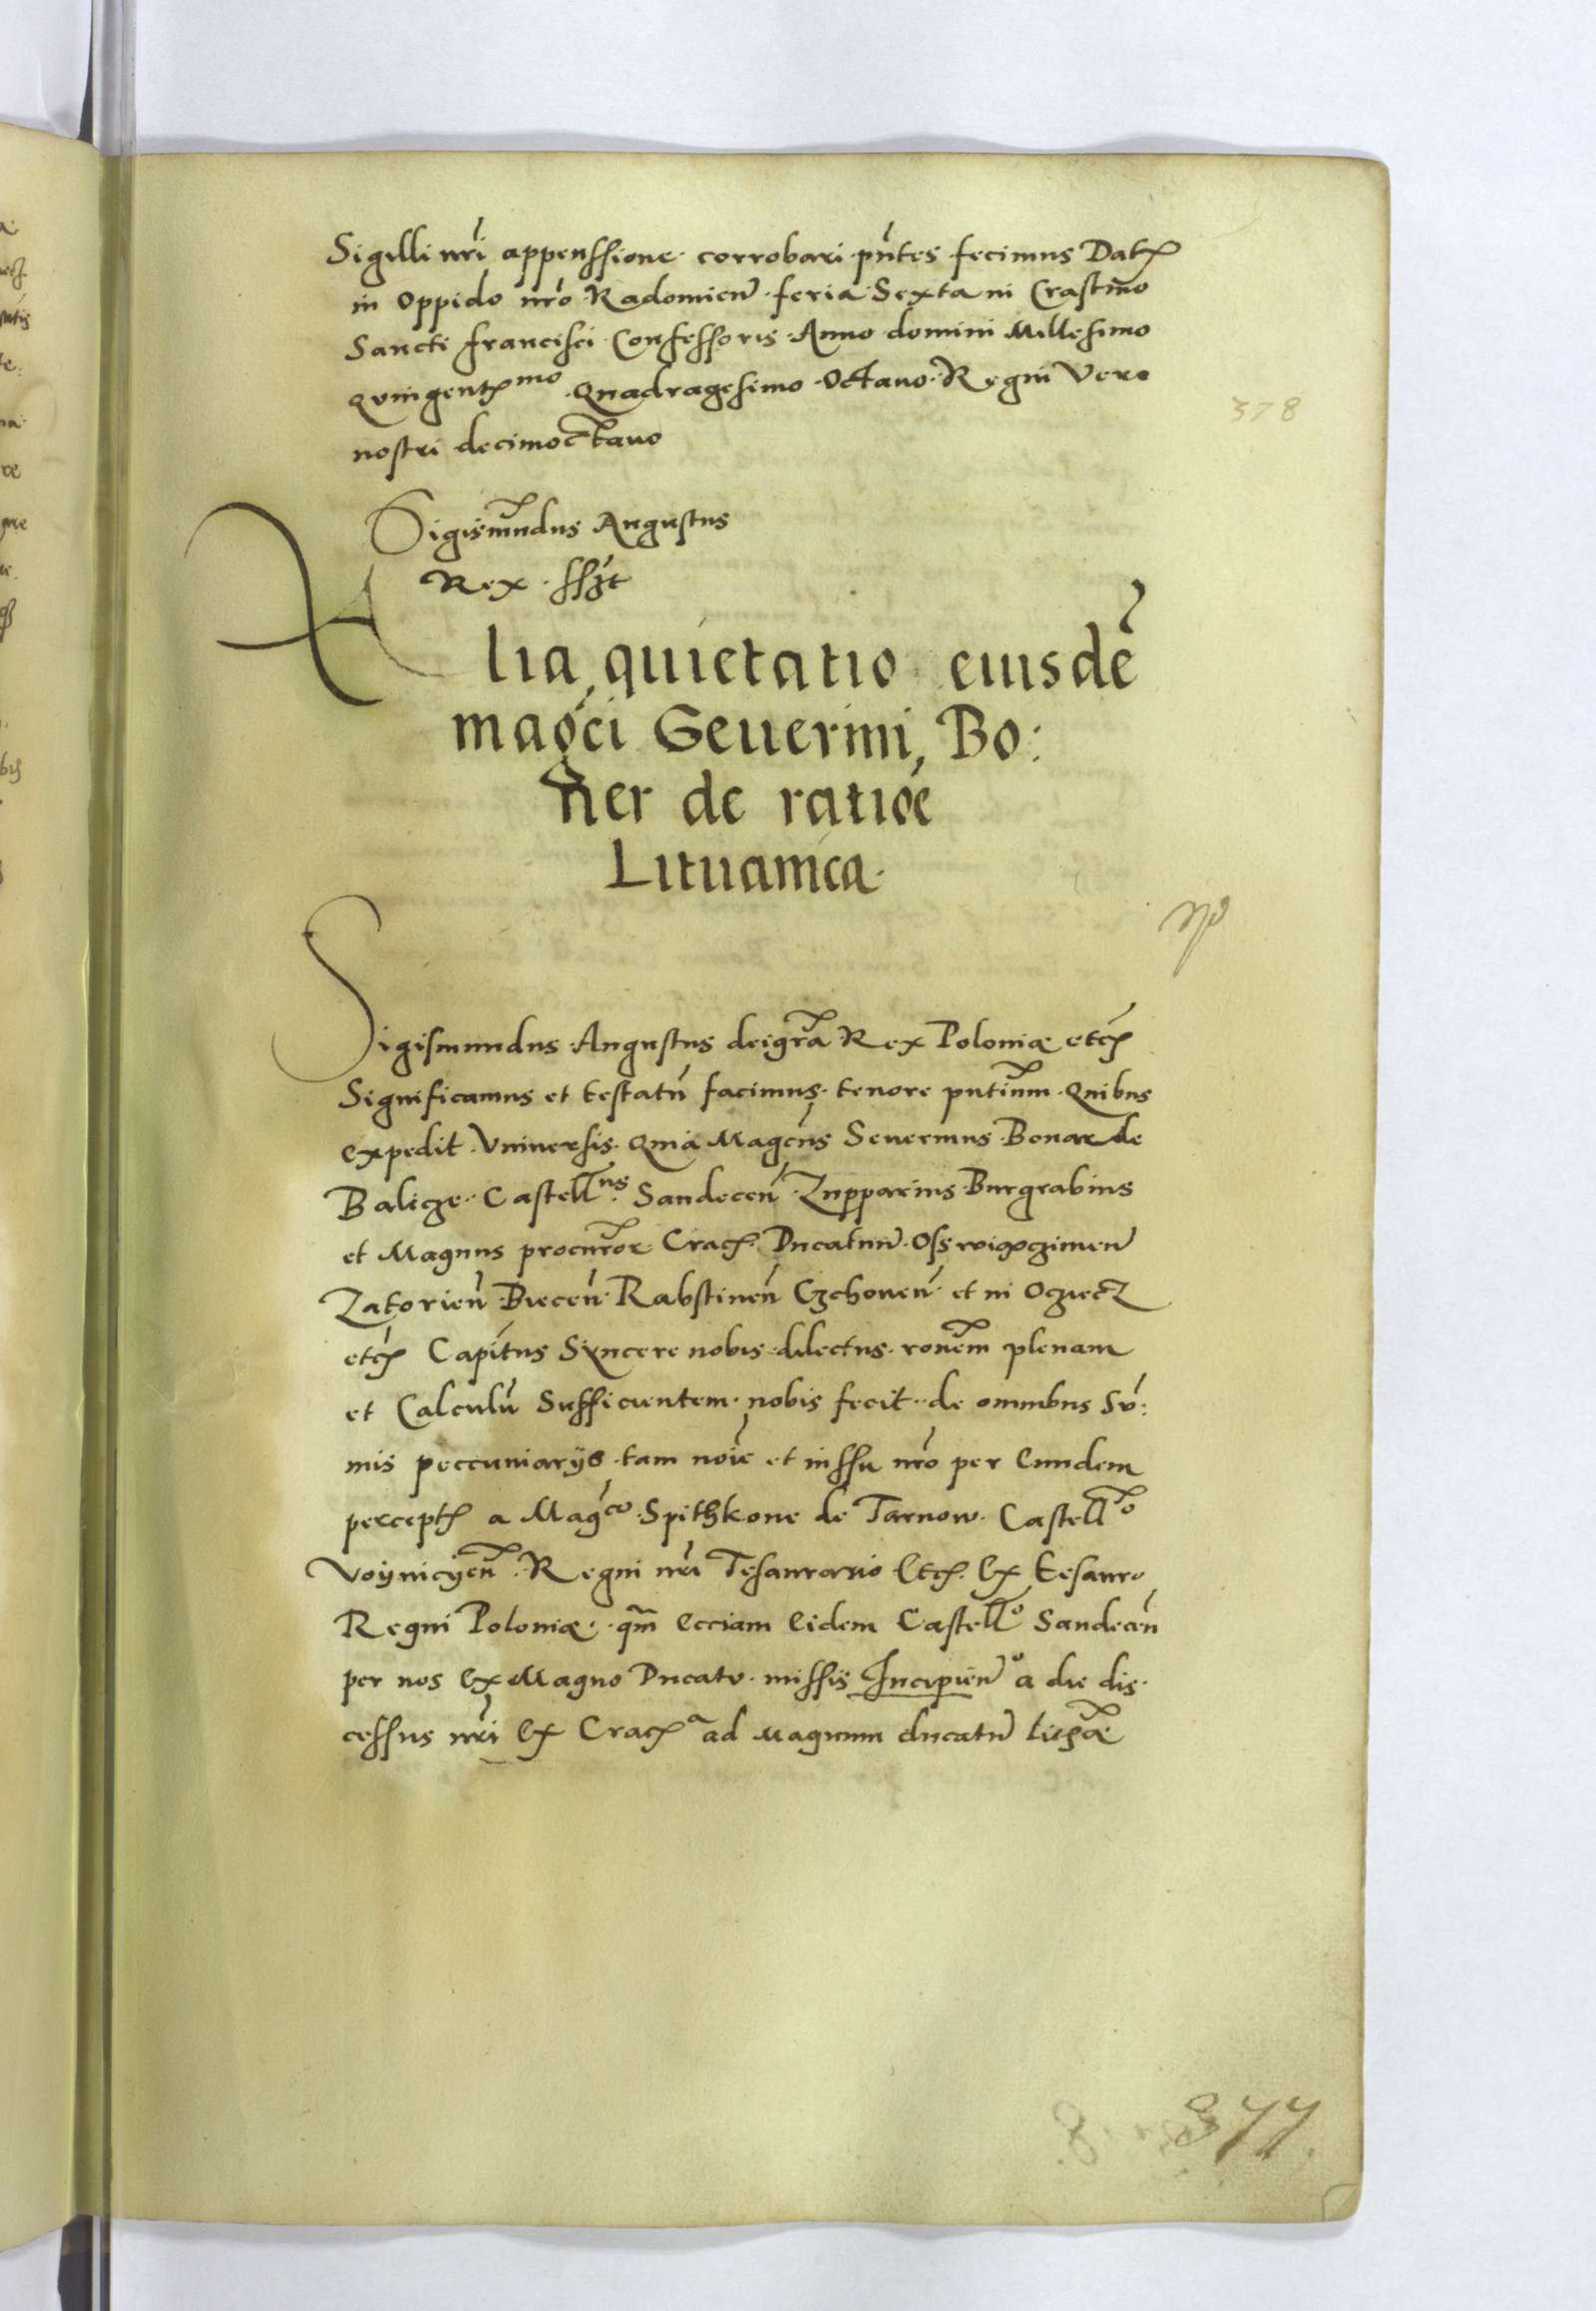 Sigilli nri appensione corrobari pntes fecimus Dat
in Oppido nro Radomien feria Sexta in Crastino
Sancti francisci Confessoris Anno domini Millesimo
quingent mo Quadragesimo Octauo Regni Vero
nostri decimoctauo
378
Sigismundus Augustus
Rex sszt
Alia quietatio eiusdē
magci Seuerini, Bo:
ner de ratiōe
Lituanica
Sigismundus Augustus dei gra Rex Poloniæ etc
Significamus et testatū facimus tenore pntium Quibus
expedit Vniuersis quia Magcus Seuerinus Bonar de
Balicze Castellus Sandecen Zupparius Burgrabius
et Magnus procurror Crac Ducatuū Osswiączimen
Zatorien Biecen Rabstinen Czchouen et in Ocziecz
etc Capitus Syncere nobis dilectus ronem plenam
et Calculū Sufficientem nobis fecit de omnibus Sū:
mis peccuniarijs tam noie et iussu nro per eundem
percept a Magco Spithkone de Tarnow Castello
Voynicyen Regni nri Tesaurario Etc Ex tesauro
Regni Poloniæ qm ecciam eidem Castello Sandecen
per nos ex Magno Ducatu missis Incipien a die dis
cessus nri Ex Crac a ad Magnum ducatū
377